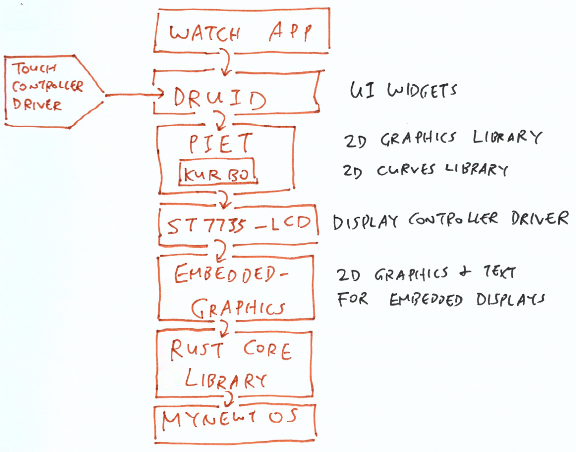 WATCH APP
TOUCH
CONTROLLER
DRIVER
DRUID
UI WIDGETS
PIET
2D GRAPHICS LIBRARY
KURBO
2D CURVES LIBRARY
ST7735-LCD
DISPLAY CONTROLLER DRIVER
EMBEDDED-
GRAPHICS
2D GRAPHICS & TEXT
FOR EMBEDDED DISPLAYS
RUST CORE
LIBRARY
MYNEWT OS